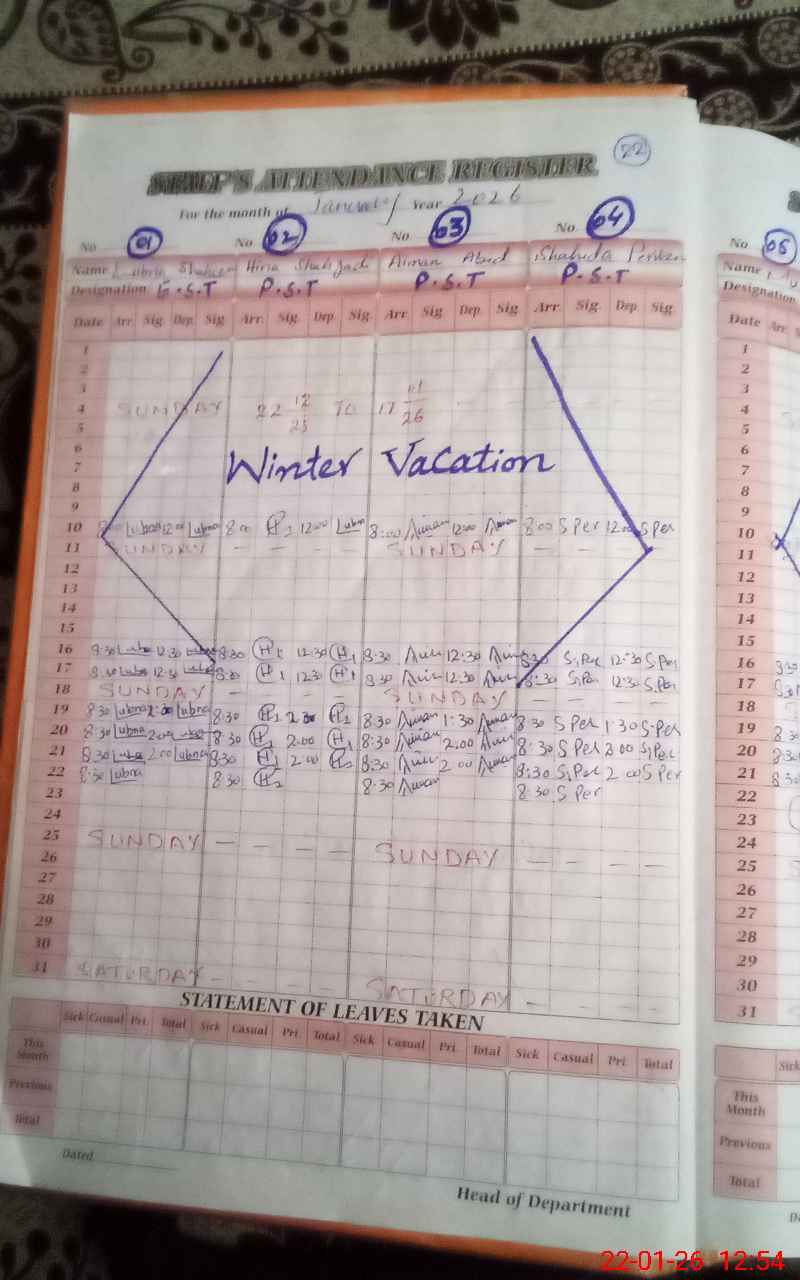 22
STAFF'S ATTENDANCE REGISTER
For the month of January Year 2026
No 01 No. 02 No. 03 No. 04 No 05
Name Lubna Shaheen Hina Shahzadi Aiman Abid Shahida Perveen Name
Designation E.S.T P.S.T P.S.T P.S.T Designation
Date Arr. Sig. Dep. Sig Arr. Sig. Dep Sig. Arr Sig Dep. Sig Arr. Sig. Dep Sig. Date Arr
1 1
2 2
3 3
4 SUNDAY 22 12/25 To 17 01/26 4
5 5
6 6
7 Winter Vacation 7
8 8
9 9
10 8:00 Lubna 12:00 Lubna 8:00 H 12:00 Lubna 8:00 Aiman 12:00 Aiman 8:00 S Per 12:00 S Per 10
11 SUNDAY - - - - SUNDAY - - - - 11
12 12
13 13
14 14
15 15
16 8:30 Lubna 12:30 Lubna 8:30 H 12:30 H 8:30 Aim 12:30 Aim 8:30 S.Per 12:30 S.Per 16 8:30
17 8:30 Lubna 12:30 Lubna 8:30 H 12:30 H 8:30 Aim 12:30 Aim 8:30 S.Per 12:30 S.Per 17 8:30
18 SUNDAY - - - - SUNDAY - - - - 18
19 8:30 Lubna Lubna 8:30 H H 8:30 Aiman 1:30 Aiman 8:30 S Per 1:30 S.Per 19 8:30
20 8:30 Lubna 2:00 Lubna 8:30 H 2.00 H 8:30 Aiman 2.00 Aim 8:30 S Per 2:00 S.Per 20 8:30
21 8:30 Lubna 2:00 Lubna 8:30 H 2:00 H 8:30 Aim 2:00 Aiman 8:30 S.Per 2:00 S Per 21 8:30
22 8:30 Lubna 8:30 H 8:30 Aiman 8:30 S Per 22
23 23
24 24
25 SUNDAY - - - - SUNDAY - - - - 25
26 26
27 27
28 28
29 29
30 30
31 SATURDAY - - - - SATURDAY - - - - 31
STATEMENT OF LEAVES TAKEN
Sick Casual Pri. Total Sick Casual Pri. Total Sick Casual Pri Total Sick Casual Pri Total Sick
This Month This Month
Previous Previous
Total Total
Dated
Head of Department
22-01-26 12:54